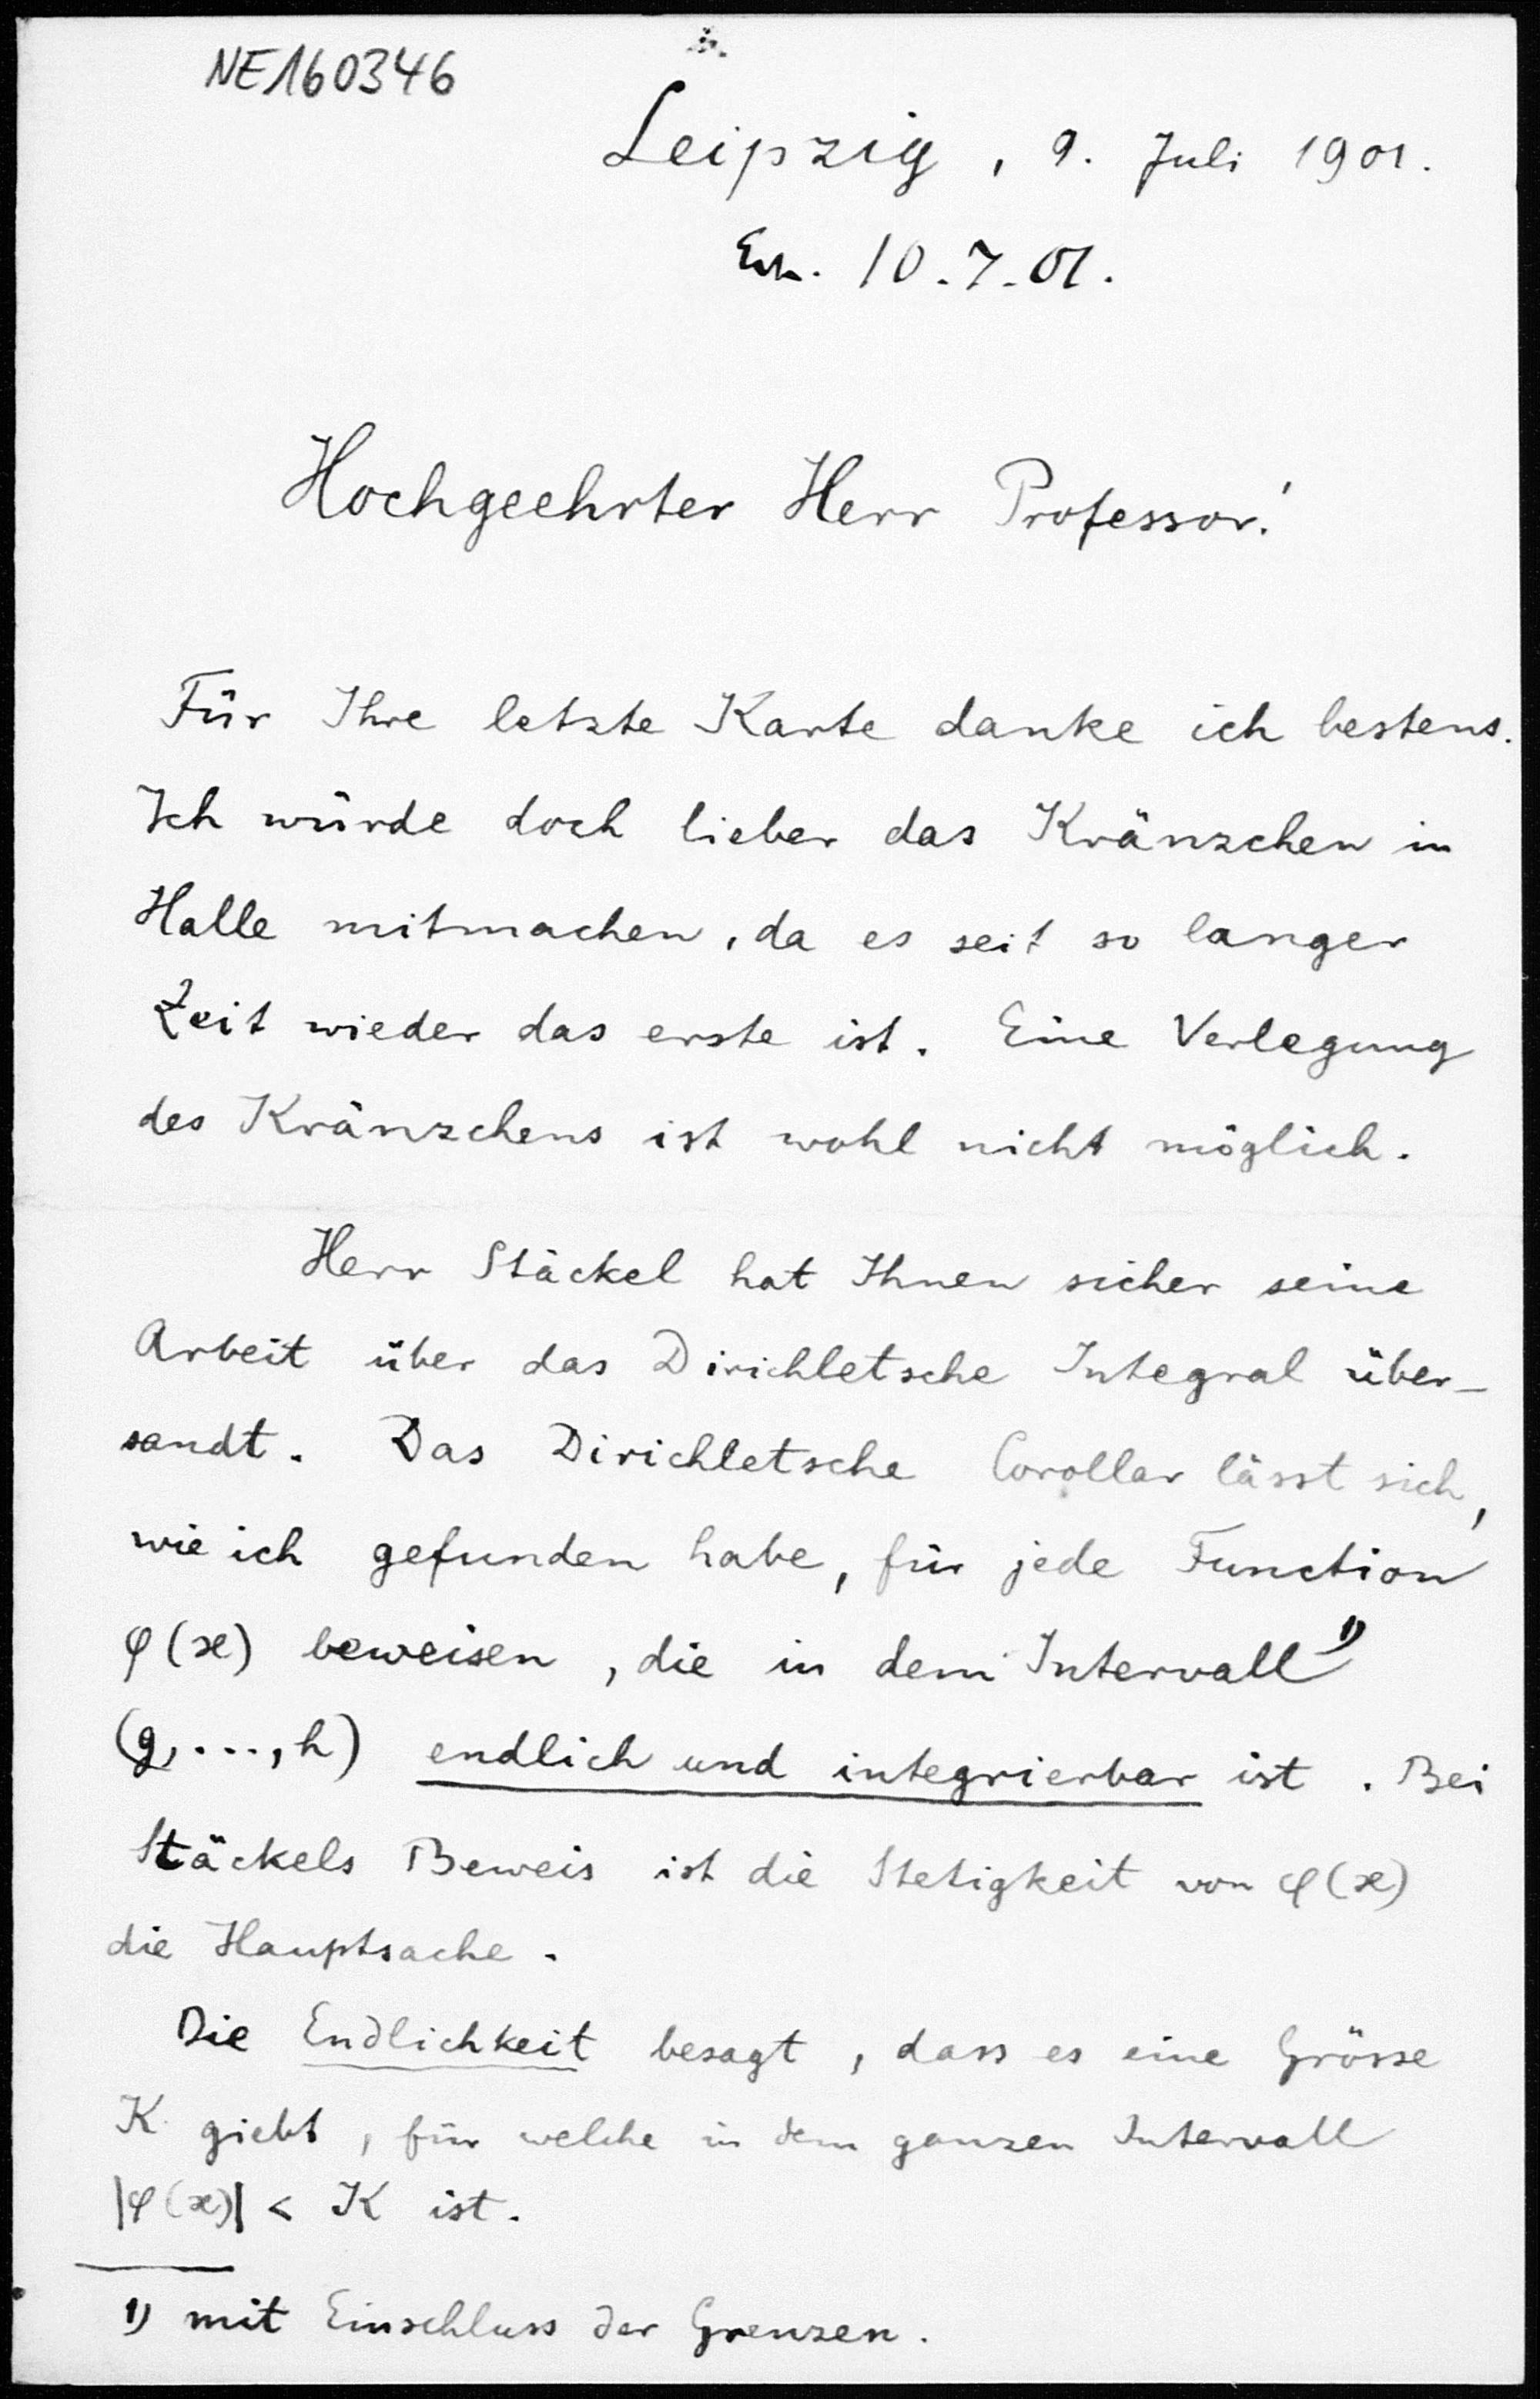 NE160346
Leipzig, 9. Juli 1901.
10.7.01.
Hochgeehrter Herr Professor!
Für Ihre letzte Karte danke ich bestens.
Ich würde doch lieber das Kränzchen in
Halle mitmachen, da es seit so langer
Zeit wieder das erste ist. Eine Verlegung
des Kränzchens ist wohl nicht möglich.
Herr Stäckel hat Ihnen sicher seine
Arbeit über das Dirichletsche Integral über-
sandt. Das Dirichletsche Corollar lässt sich,
wie ich gefunden habe, für jede Function
φ(x) beweisen, die in dem Intervall 1)
(g,...,h) endlich und integrierbar ist. Bei
Stäckels Beweis ist die Stetigkeit von φ(x)
die Hauptsache.
Die Endlichkeit besagt, dass es eine Grösse
K giebt, für welche in dem ganzen Intervall
|φ(x)| < K ist.
1) mit Einschluss der Grenzen.